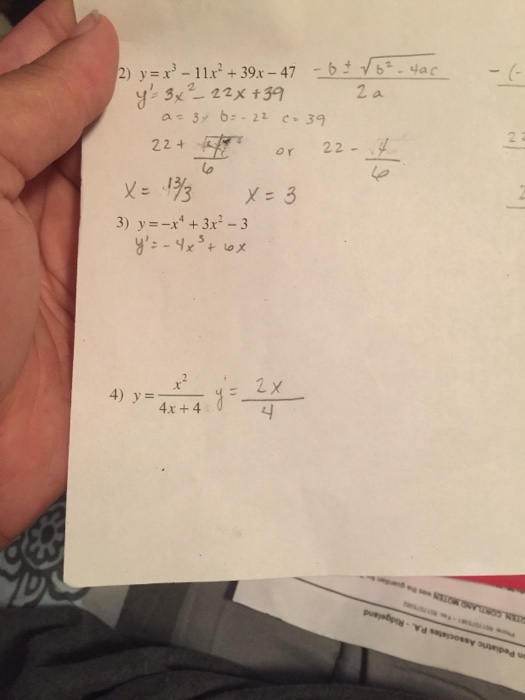 2) y = x³ – 11x² + 39x – 47 -b ± √b² - 4ac - (-
y' = 3x² - 22x + 39 2a
a = 3 b = -22 c = 39
22 + or 22 - 4
6 6
x = 13/3 x = 3
3) y = –x⁴ + 3x² – 3
y' = -4x³ + 6x
4) y = x² / 4x + 4 y' = 2x / 4
Pediatric Associates P.A. - Ridgeland